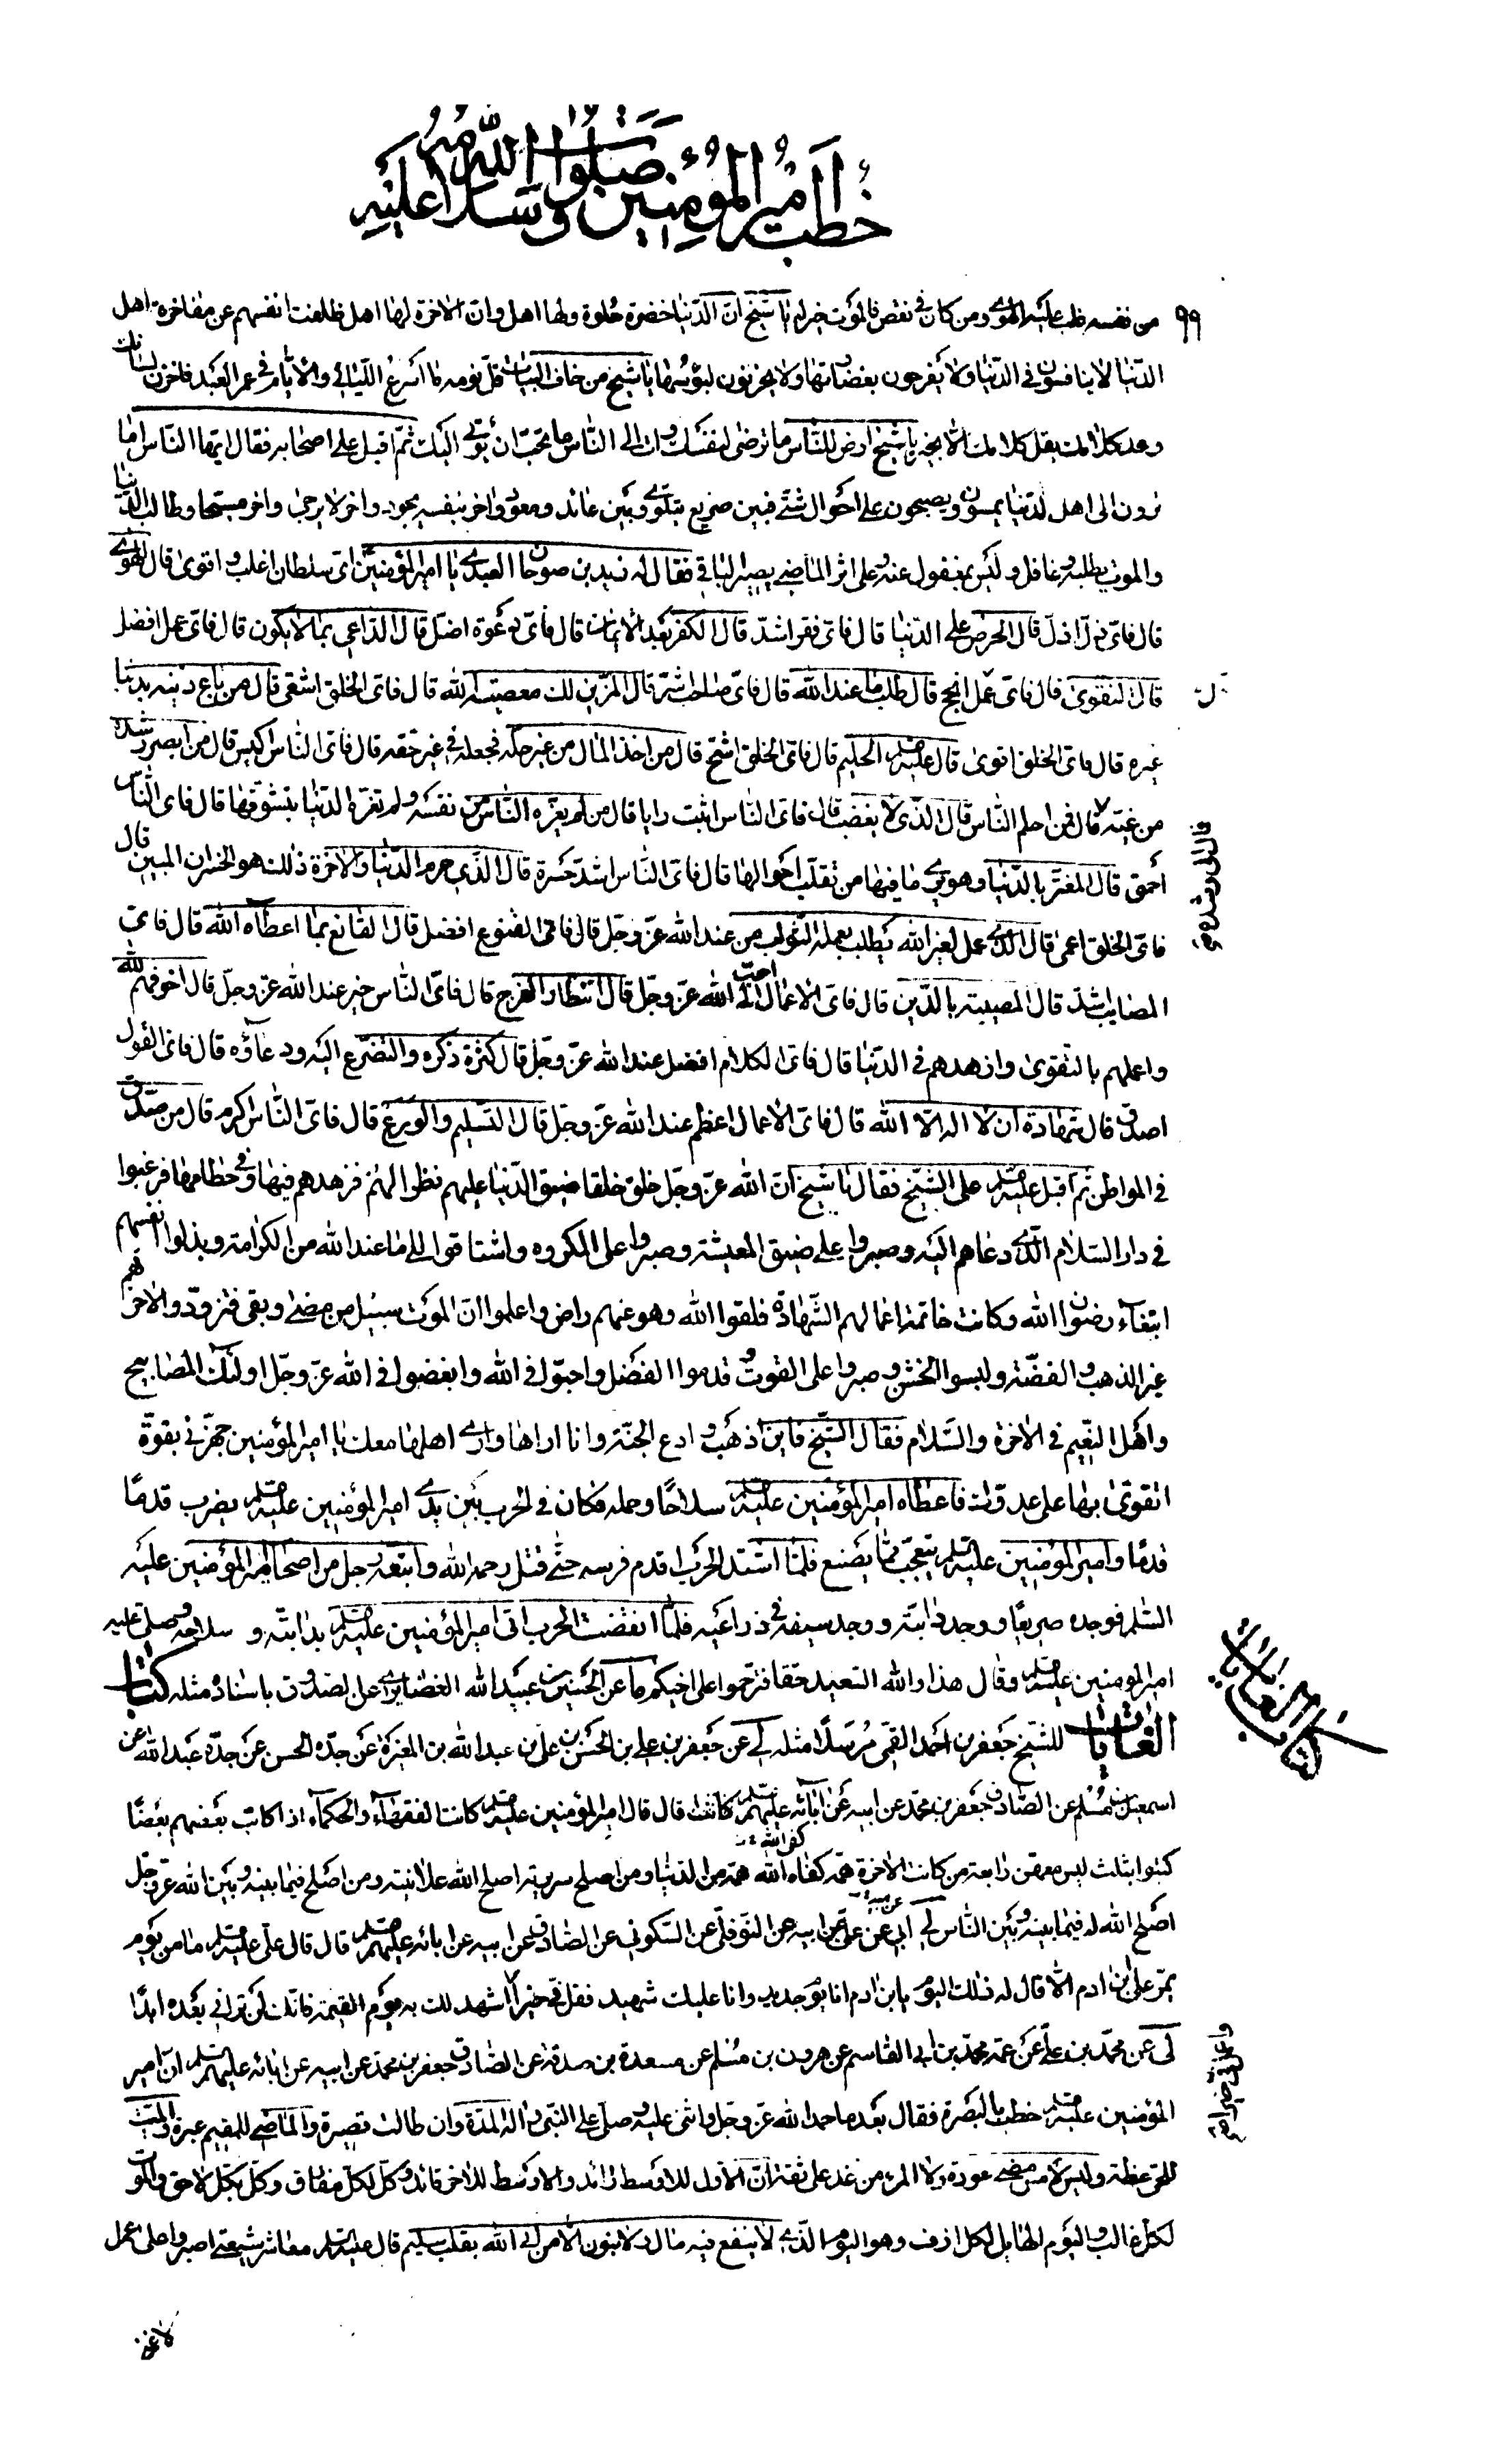 خطب أمير المؤمنين صلوات الله وسلامه عليه
٩٩
من نفسه غلب عليه الهوى ومن كان في نقص فالموت خير له يا شيخ ان الدنيا خضرة حلوة ولها اهل وان الاخرة لها اهل ظلفت انفسهم عن مفاخرة اهل
الدنيا لا يتنافسون في الدنيا ولا يفرحون بغضارتها ولا يحزنون لبؤسها يا شيخ من خاف البيات قل نومه ما اسرع الليالي والايام في عمر العبد فاخزن لسانك
وعد كلامك يقل كلامك الا بخير يا شيخ ارض للناس ما ترضى لنفسك وات الى الناس ما تحب ان يؤتى اليك ثم اقبل على اصحابه فقال ايها الناس اما
ترون الى اهل الدنيا يمسون ويصبحون على احوال شتى فبين صريع يتلوى وبين عائد ومعود واخر بنفسه يجود واخر لا يرجى واخر مسجى وطالب الدنيا
والموت يطلبه وغافل وليس بمغفول عنه وعلى اثر الماضي يصير الباقي فقال له زيد بن صوحان العبدي يا امير المؤمنين اي سلطان اغلب واقوى قال الهوى
قال فاي ذل اذل قال الحرص على الدنيا قال فاي فقر اشد قال الكفر بعد الايمان قال فاي دعوة اضل قال الداعي بما لا يكون قال فاي عمل افضل
قال التقوى قال فاي عمل انجح قال طلب ما عند الله قال فاي صاحب شر قال المزين لك معصية الله قال فاي الخلق اشقى قال من باع دينه بدنيا
غيره قال فاي الخلق اقوى قال عليه السلام الحليم قال فاي الخلق اشح قال من اخذ المال من غير حله فجعله في غير حقه قال فاي الناس اكيس قال من ابصر رشده
من غيه قال فمن احلم الناس قال الذي لا يغضب قال فاي الناس اثبت رايا قال من لم يغره الناس من نفسه ولم تغره الدنيا بتشوقها قال فاي الناس
احمق قال المغتر بالدنيا وهو يرى ما فيها من تقلب احوالها قال فاي الناس اشد حسرة قال الذي حرم الدنيا والاخرة ذلك هو الخسران المبين قال
فاي الخلق اعمى قال الذي عمل لغير الله يطلب بعمله الثواب من عند الله عز وجل قال فاي القنوع افضل قال القانع بما اعطاه الله قال فاي
المصايب اشد قال المصيبة بالدين قال فاي الاعمال احب الى الله عز وجل قال انتظار الفرج قال فاي الناس خير عند الله عز وجل قال اخوفهم لله
واعملهم بالتقوى وازهدهم في الدنيا قال فاي الكلام افضل عند الله عز وجل قال كثرة ذكره والتضرع اليه ودعاؤه قال فاي القول
اصدق قال شهادة ان لا اله الا الله قال فاي الاعمال اعظم عند الله عز وجل قال التسليم والورع قال فاي الناس اكرم قال من صدق
في المواطن ثم اقبل عليه السلام على الشيخ فقال يا شيخ ان الله عز وجل خلق خلقا ضيق الدنيا عليهم نظرا لهم فزهدهم فيها وفي حطامها فرغبوا
في دار السلام الذي دعاهم اليه وصبروا على ضيق المعيشة وصبروا على المكروه واشتاقوا الى ما عند الله من الكرامة وبذلوا انفسهم
ابتغاء رضوان الله وكانت خاتمة اعمالهم الشهادة فلقوا الله وهو عنهم راض واعلموا ان الموت سبيل من مضى وبقي فتزودوا لاخرتهم
غير الذهب والفضة ولبسوا الخشن وصبروا على القوت وقدموا الفضل واحبوا في الله وابغضوا في الله عز وجل اولئك المصابيح
واهل النعيم في الاخرة والسلام فقال الشيخ فاين اذهب وادع الجنة وانا اراها وارى اهلها معك يا امير المؤمنين جهزني بقوة
اتقوى بها على عدوك فاعطاه امير المؤمنين عليه السلام سلاحا وحمله فكان في الحرب بين يدي امير المؤمنين عليه السلام يضرب قدما
قدما وامير المؤمنين عليه السلام يتعجب مما يصنع فلما اشتد الحرب اقدم فرسه حتى قتل رحمه الله واتبعه رجل من اصحاب امير المؤمنين عليه
السلام فوجده صريعا ووجد دابته ووجد سيفه في ذراعيه فلما انقضت الحرب اتى امير المؤمنين عليه السلام بدابته وسلاحه وصلى عليه
امير المؤمنين عليه السلام وقال هذا والله السعيد حقا فترحموا على اخيكم ما عن الحسين بن عبيد الله الغضايري عن الصدوق باسناده مثله كتاب
الغايات للشيخ جعفر بن احمد القمي مرسلا مثله لي عن جعفر بن علي بن الحسن بن علي بن عبد الله بن المغيرة عن جده الحسن عن جده عبد الله عن
اسمعيل بن مسلم عن الصادق جعفر بن محمد عن ابيه عن آبائه عليهم السلام قال قال امير المؤمنين عليه السلام كانت الفقهاء والحكماء اذا كاتب بعضهم بعضا
كتبوا بثلث ليس معهن رابعة من كانت الاخرة همه كفاه الله همه من الدنيا ومن اصلح سريرته اصلح الله علانيته ومن اصلح فيما بينه وبين الله عز وجل
اصلح الله له فيما بينه وبين الناس لي ابي عن علي عن ابيه عن النوفلي عن السكوني عن الصادق عن ابيه عن ابائه عليهم السلام قال قال علي عليه السلام ما من يوم
يمر على ابن ادم الا قال له ذلك اليوم يا بن ادم انا يوم جديد وانا عليك شهيد فقل في خيرا اشهد لك به يوم القيمة فانك لن تراني بعده ابدا
لي عن محمد بن علي عن عمه محمد بن ابي القاسم عن هرون بن مسلم عن مسعدة بن صدقة عن الصادق جعفر بن محمد عن ابيه عن ابائه عليهم السلام ان امير
المؤمنين عليه السلام خطب بالبصرة فقال بعد ما حمد الله عز وجل واثنى عليه وصلى على النبي واله المدة وان طالت قصيرة والماضي للمقيم عبرة والميت
للحي عظة وليس لامس مضى عودة ولا المرء من غد على ثقة ان الاول للاوسط رائد والاوسط للاخر قائد وكل لكل مفارق وكل بكل لاحق والموت
لكل غالب واليوم الهايل لكل ازف وهو اليوم الذي لا ينفع فيه مال ولا بنون الا من اتى الله بقلب سليم قال عليه السلام معاشر شيعتي اصبروا على عمل
كتاب الغايات